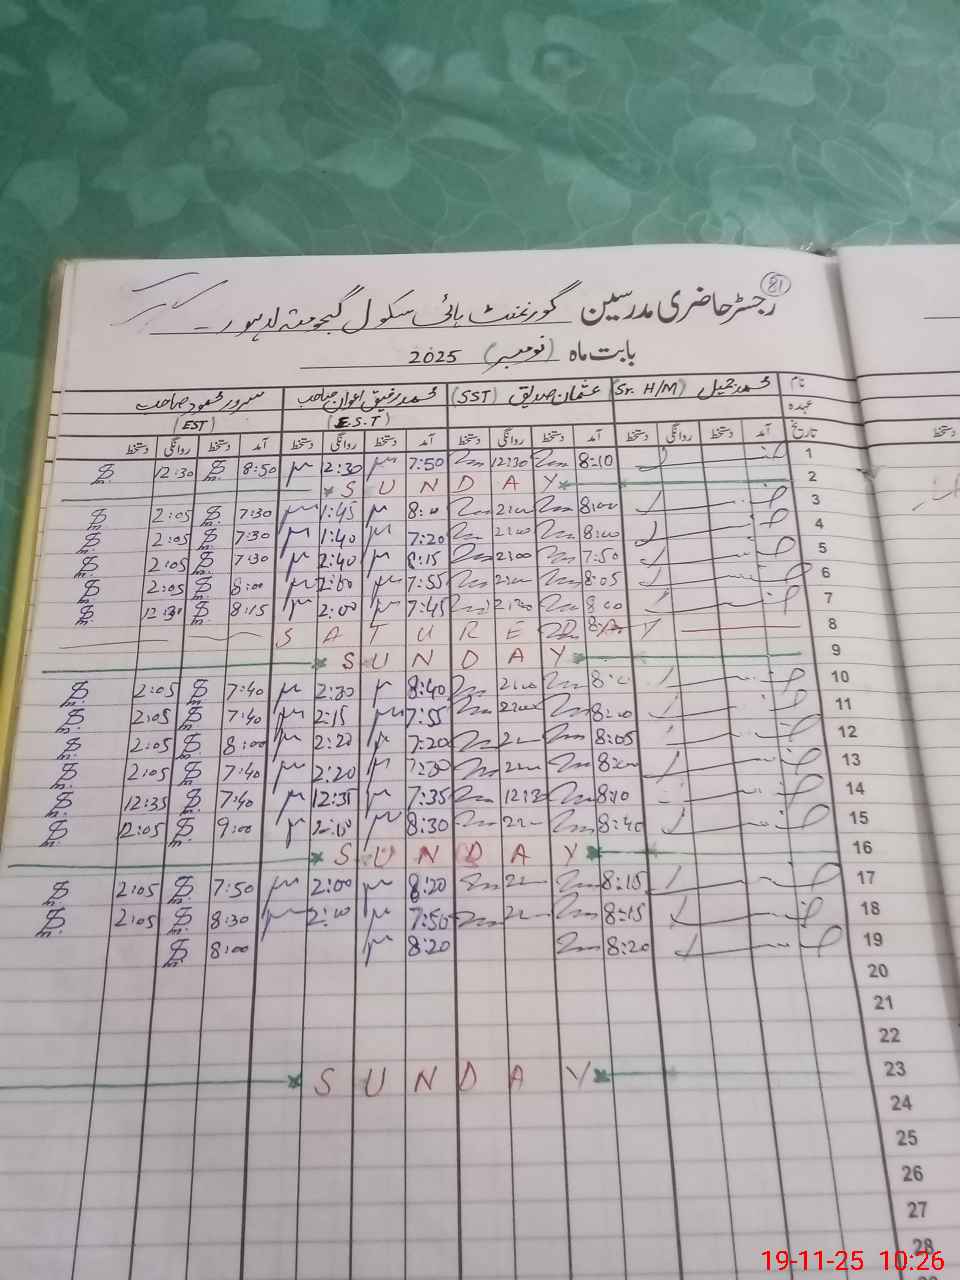 81
رجسٹر حاضری مدرسین گورنمنٹ ہائی سکول گجومتہ لاہور
بابت ماہ (نومبر) 2025
نام محمد جمیل (Sr. H/M) عثمان صدیق (SST) محمد رفیق اعوان صاحب سرور محمود صاحب
عہدہ (E.S.T) (EST)
تاریخ آمد دستخط روانگی دستخط آمد دستخط روانگی دستخط آمد دستخط روانگی دستخط آمد دستخط روانگی دستخط
1 8:10 12:30 7:50 2:30 8:50 12:30
2 SUNDAY
3 8:00 2:00 8:00 1:45 7:30 2:05
4 8:00 2:00 7:20 1:40 7:30 2:05
5 7:50 2:00 8:15 2:40 7:30 2:05
6 8:05 2:00 7:55 2:00 8:00 2:05
7 8:00 2:00 7:45 2:00 8:15 12:30
8 SATUREDAY
9 SUNDAY
10 2:00 8:40 7:40 2:05
11 8:00 2:00 7:55 2:15 7:40 2:05
12 8:05 7:20 2:20 8:00 2:05
13 8:00 2:20 7:40 2:05
14 8:10 12:30 7:35 12:35 7:40 12:35
15 8:40 8:30 2:00 9:00 2:05
16 SUNDAY
17 8:15 8:20 2:00 7:50 2:05
18 8:15 7:50 8:30 2:05
19 8:20 8:20 8:00
20
21
22
23 SUNDAY
24
25
26
27
28
19-11-25 10:26